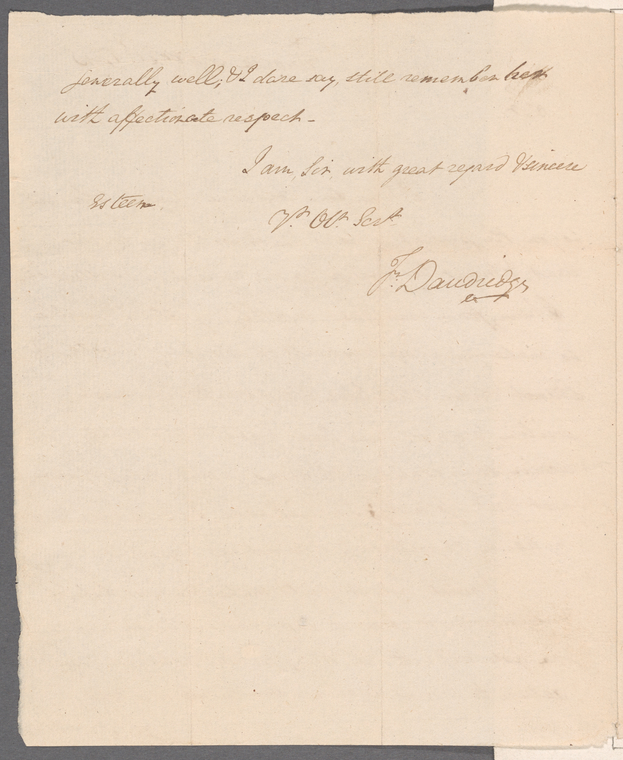 generally well; & I dare say, still remember her
with affectionate respect -
I am, Sir with great regard & sincere
esteem
Yr. Obt. Servt.
Fr. Dandridge